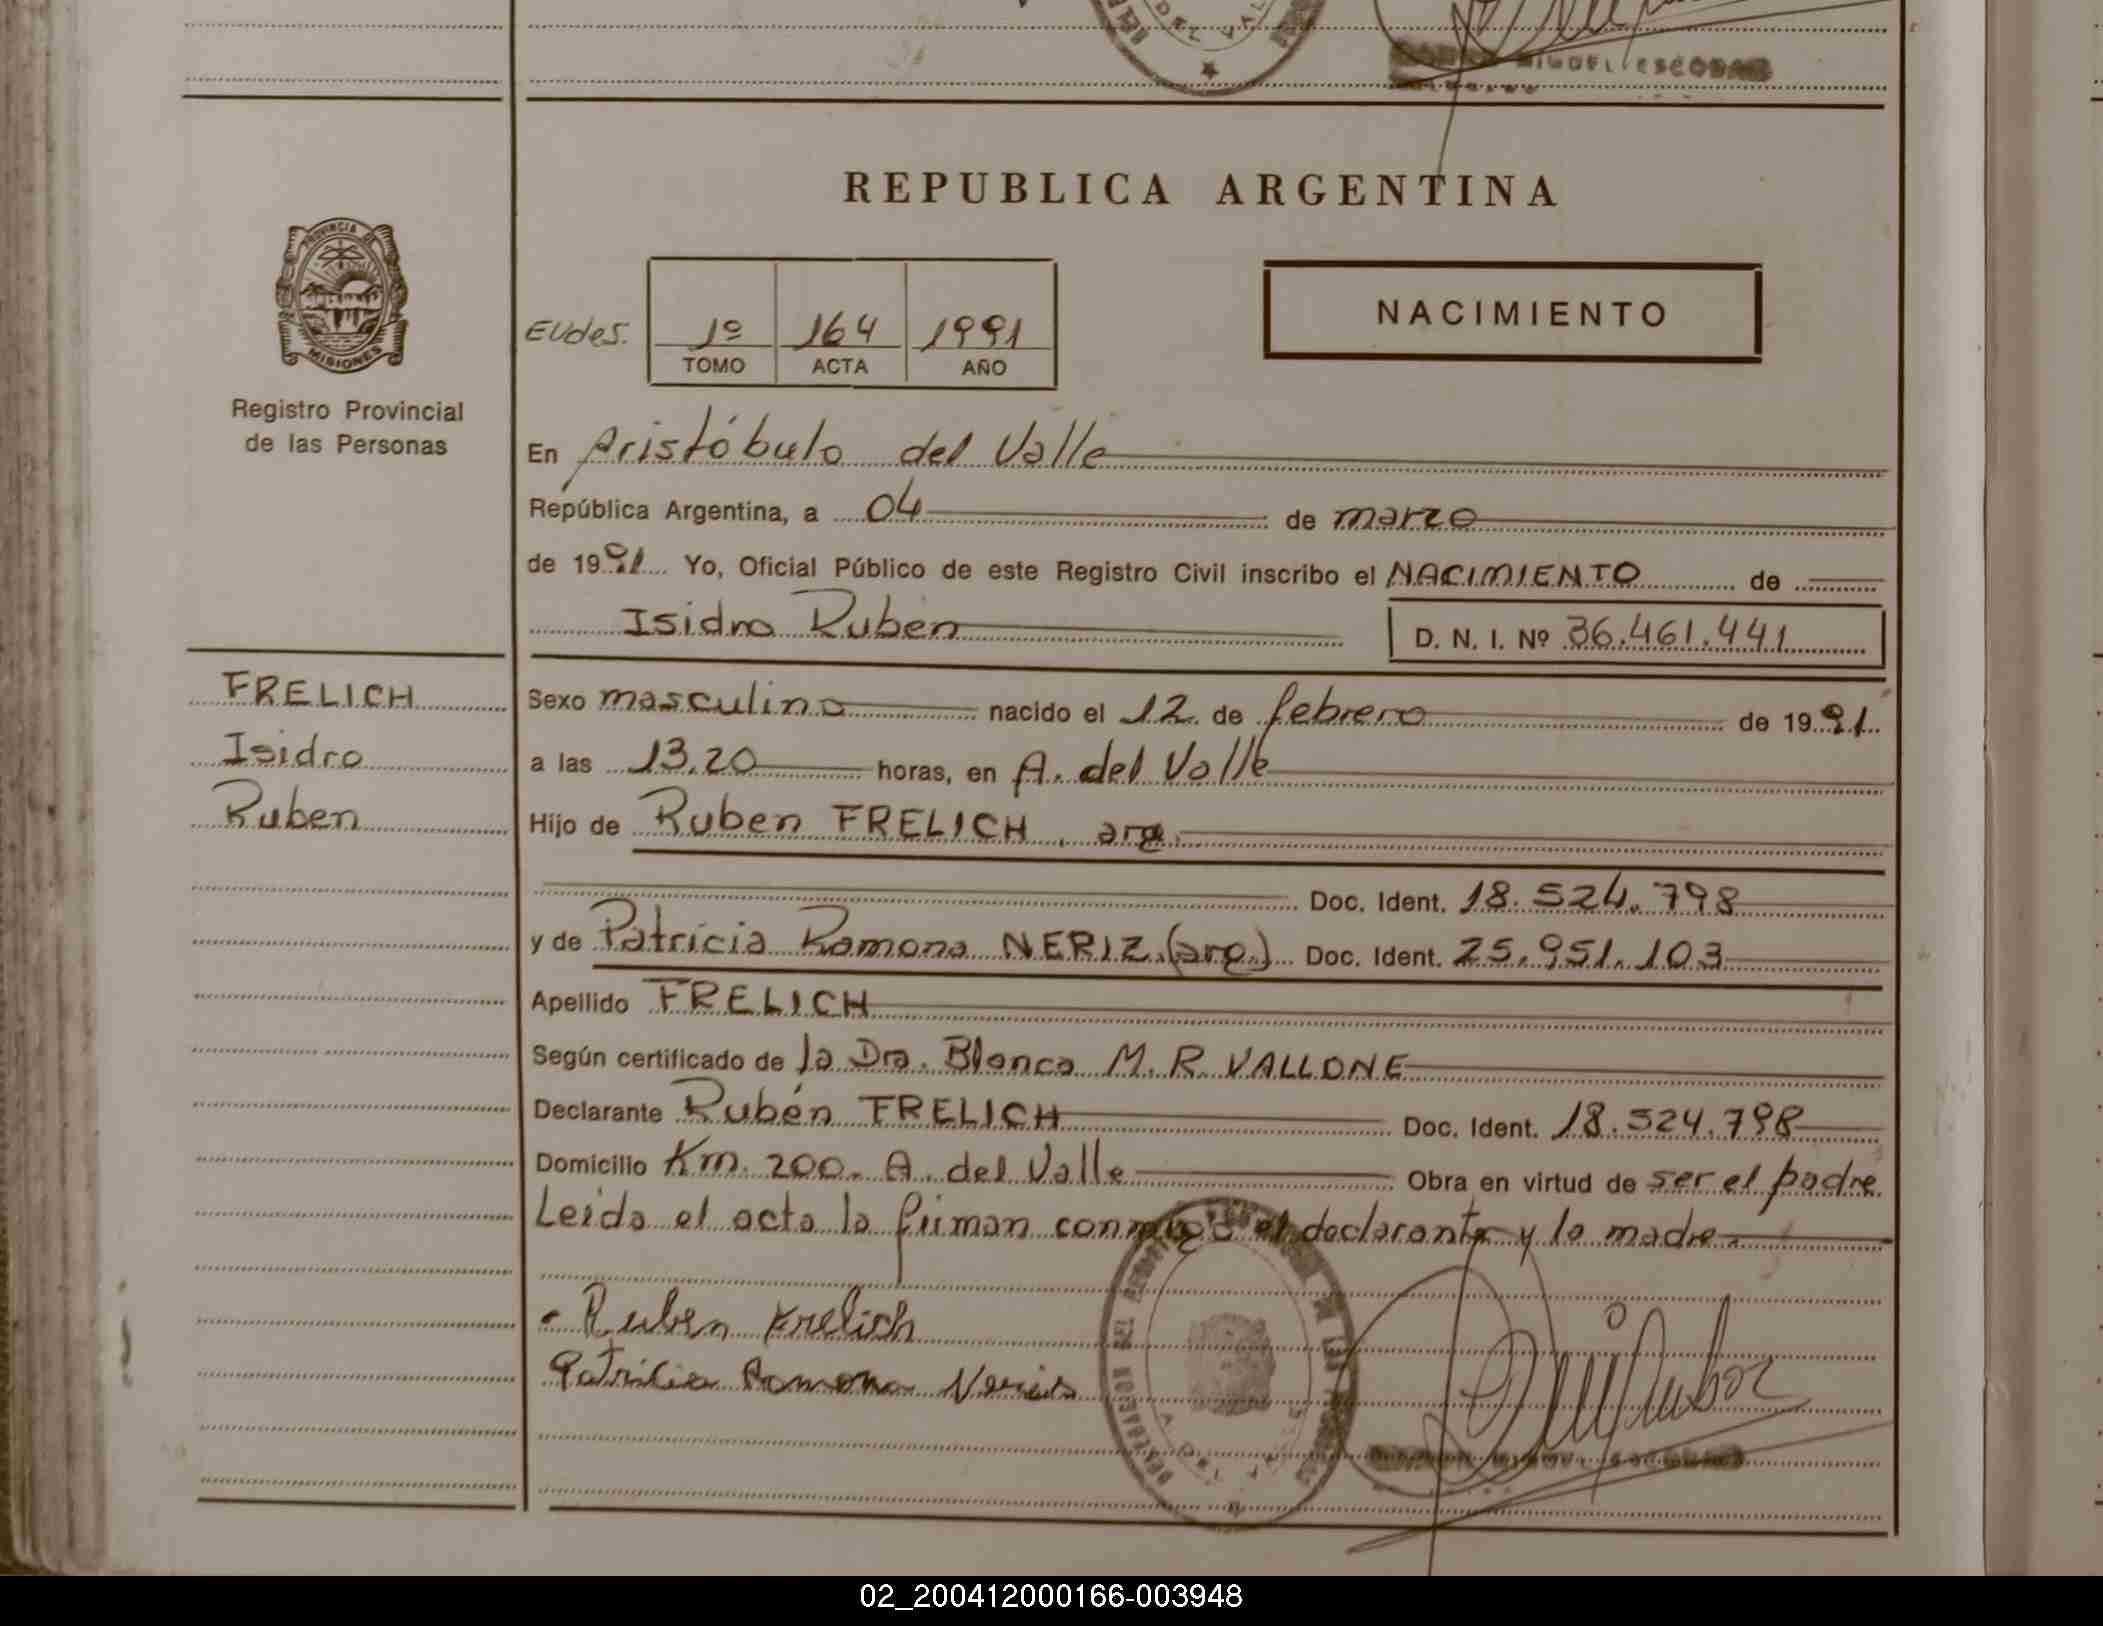 MIGUEL ESCOBAR
REPUBLICA ARGENTINA
PROVINCIA DE
MISIONES
Registro Provincial
de las Personas
NACIMIENTO
Eudes. 1º 164 1991
TOMO ACTA AÑO
En Aristóbulo del Valle
República Argentina, a 04 de marzo
de 1991 Yo, Oficial Público de este Registro Civil inscribo el NACIMIENTO de
Isidro Ruben D. N. I. Nº 36.461.441
FRELICH
Isidro
Ruben
Sexo masculino nacido el 12 de febrero de 1991.
a las 13,20 horas, en A. del Valle
Hijo de Ruben FRELICH, arg.
Doc. Ident. 18.524.798
y de Patricia Ramona NERIZ (arg) Doc. Ident. 25.951.103
Apellido FRELICH
Según certificado de la Dra. Blanca M. R. VALLONE
Declarante Rubén FRELICH Doc. Ident. 18.524.798
Domicilio Km. 200. A. del Valle Obra en virtud de ser el padre
Leída el acta la firman conmigo el declarante y la madre.
Ruben Frelich
Patricia Ramona Neris
02_200412000166-003948